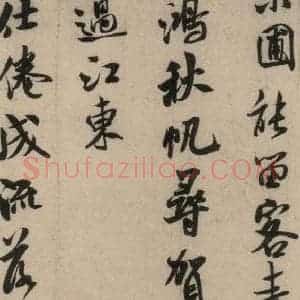 圃能留客青
鴻秋帆尋賀
過江東
仕倦成流落
Shufaziliao.com